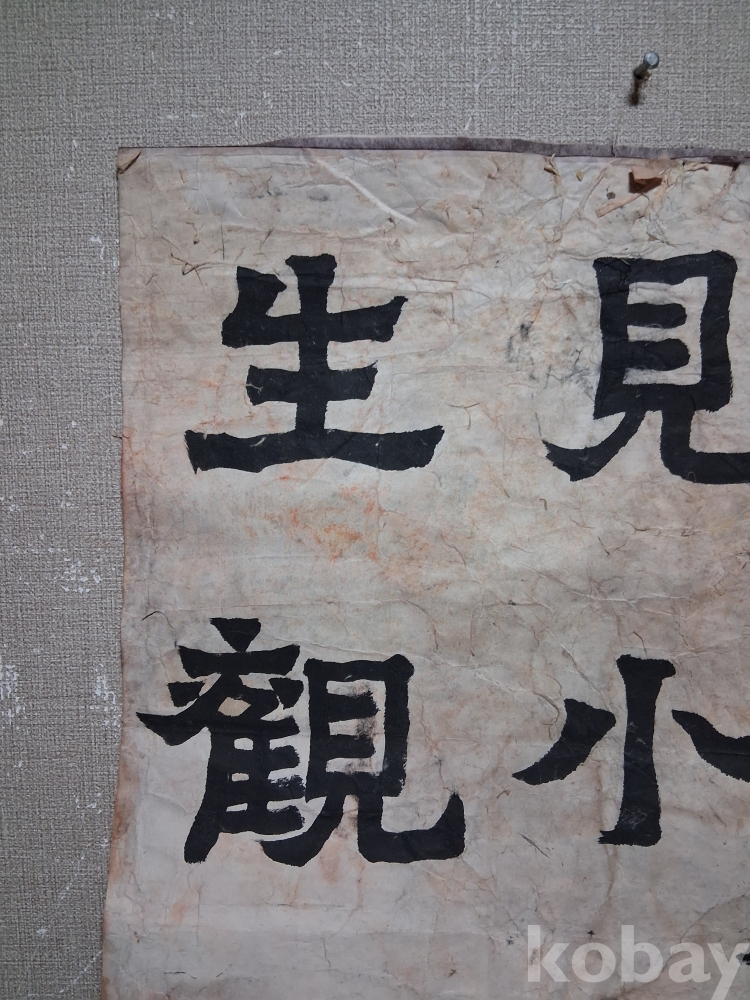 見小
生觀
kobay